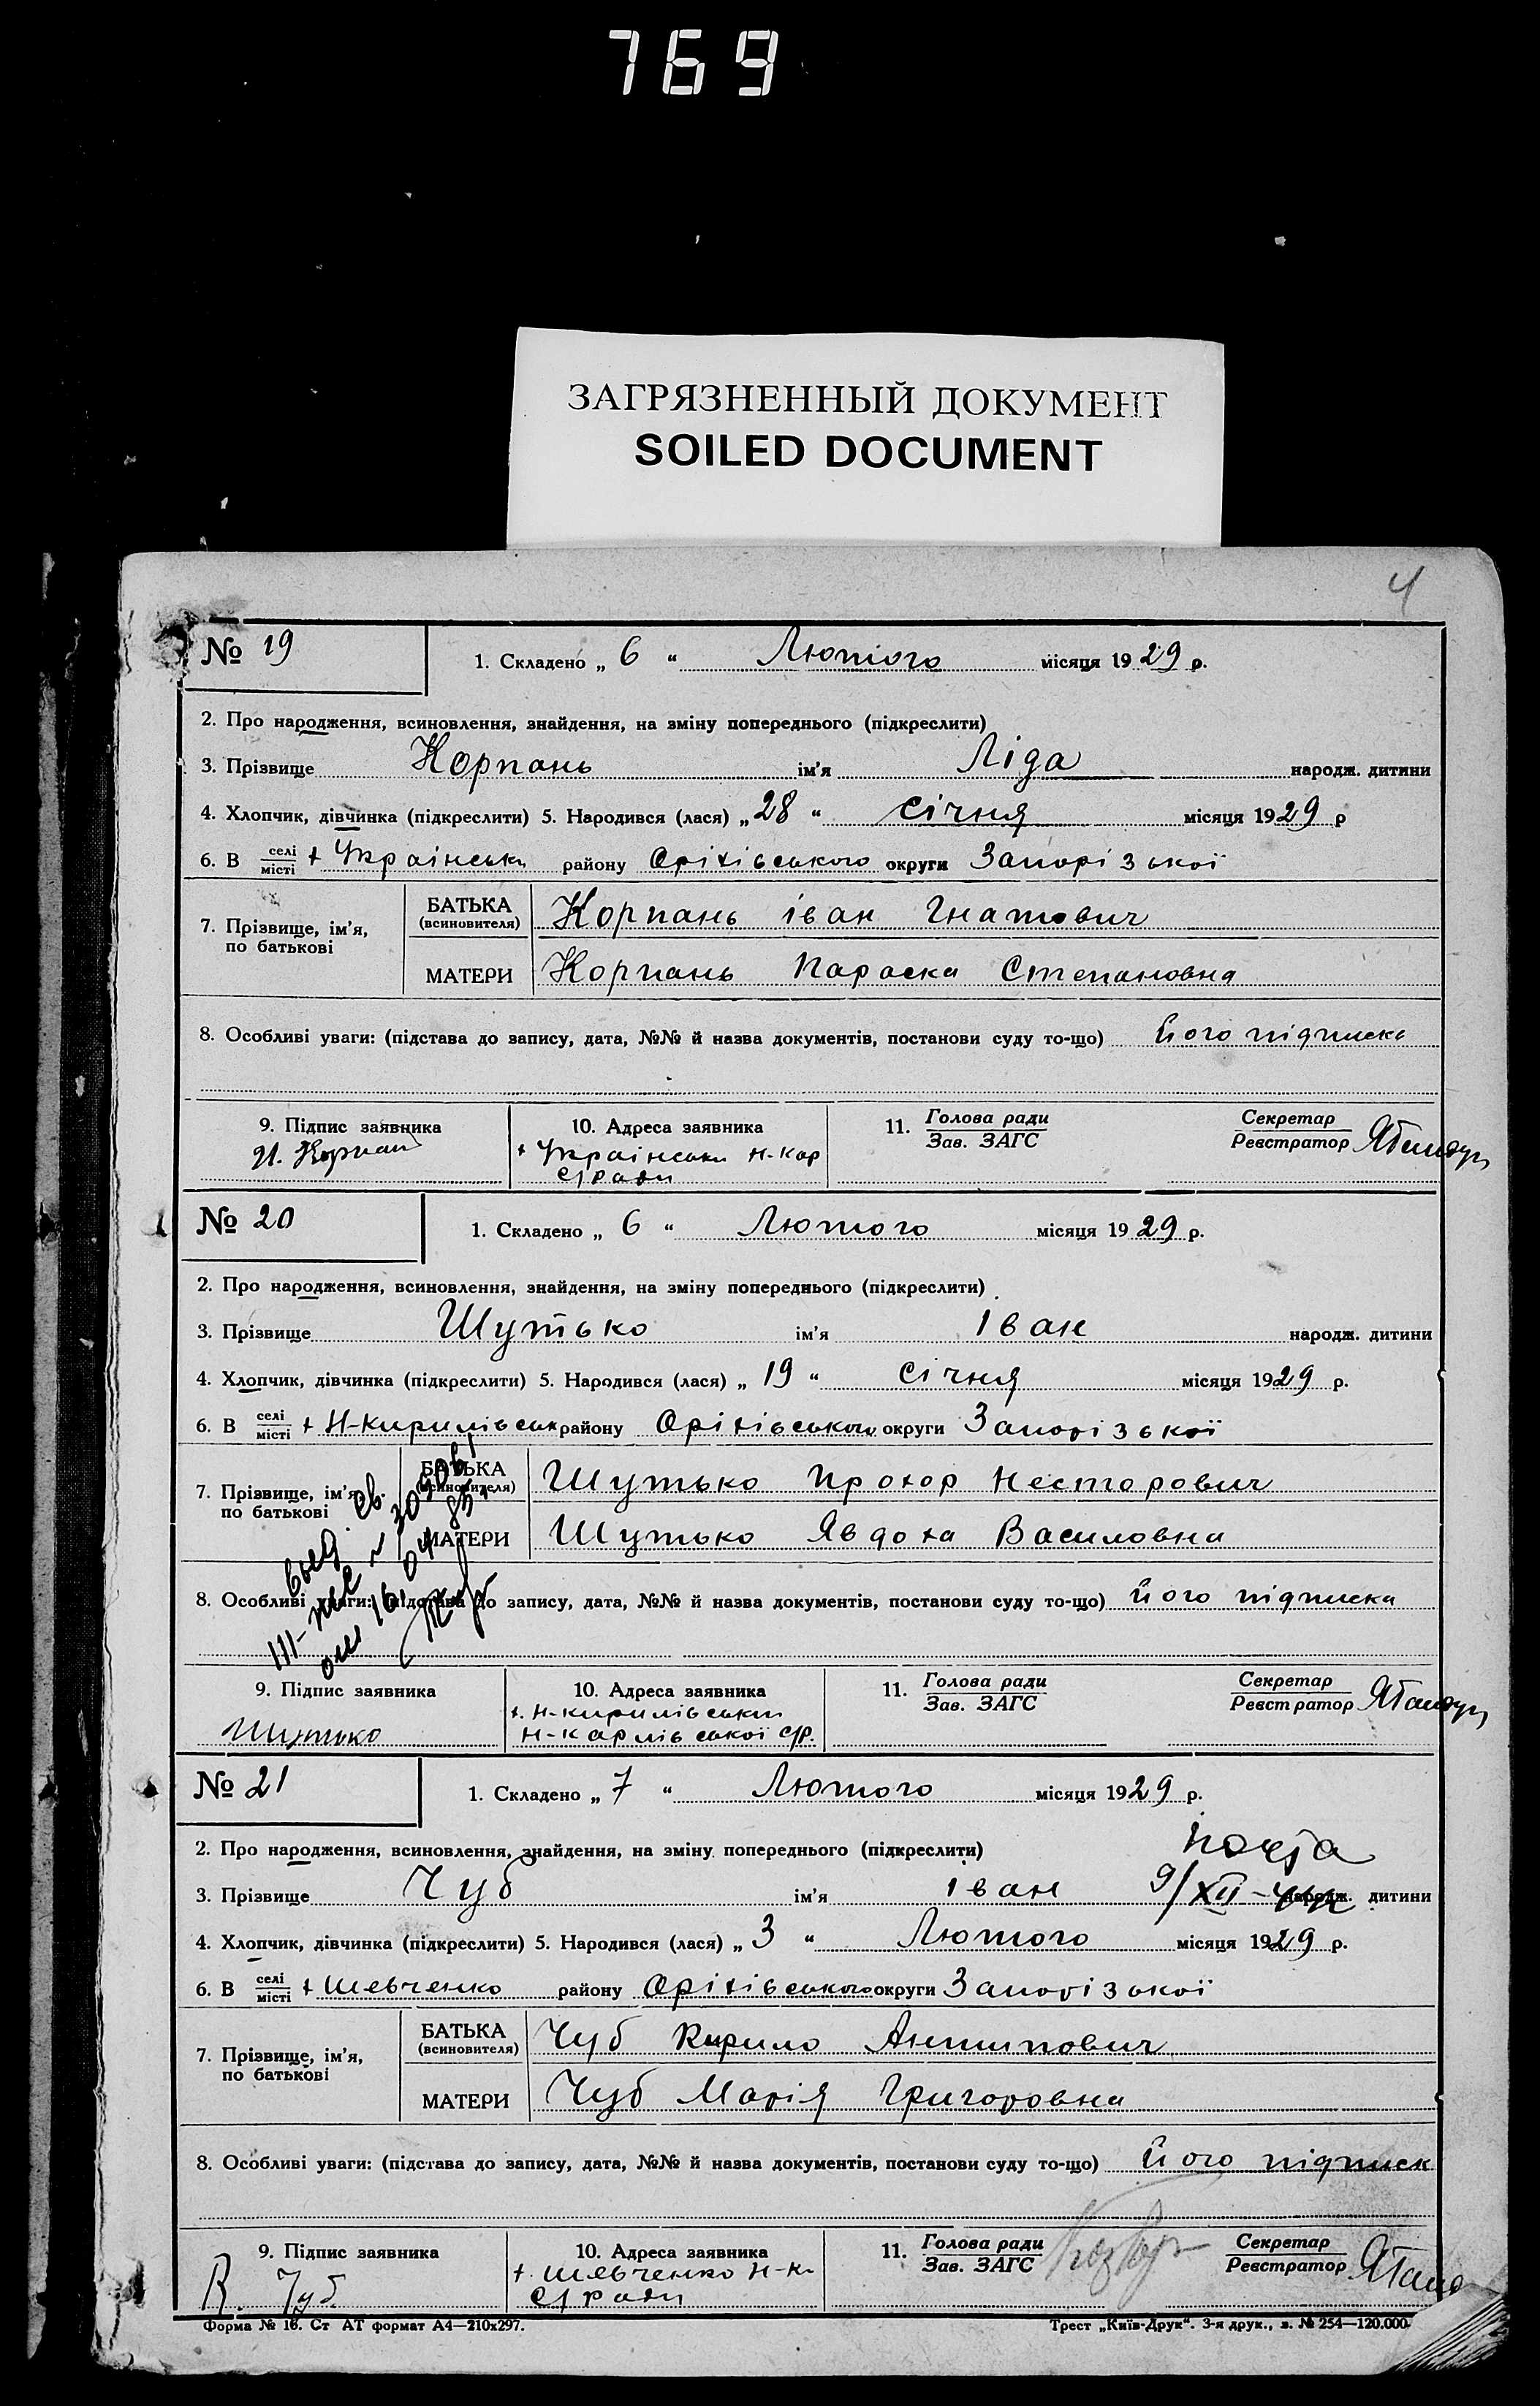 769
ЗАГРЯЗНЕННЫЙ ДОКУМЕНТ
SOILED DOCUMENT
4
№ 19
1. Складено „ 6 “ Лютого місяця 1929 р.
2. Про народження, всиновлення, знайдення, на зміну попереднього (підкреслити)
3. Прізвище Корпань ім'я Ліда народж. дитини
4. Хлопчик, дівчинка (підкреслити) 5. Народився (лася) „ 28 “ січня місяця 1929 р
6. В селі/місті х Українськ району Оріхівського округи Запорізької
7. Прізвище, ім'я, по батькові
БАТЬКА (всиновителя) Корпань іван Гнатович
МАТЕРИ Корпань Параска Степановна
8. Особливі уваги: (підстава до запису, дата, №№ й назва документів, постанови суду то-що) його підписка
9. Підпис заявника
И. Корпан
10. Адреса заявника
х Українськи Н-Кар
с/ради
11. Голова ради
Зав. ЗАГС
Секретар
Реєстратор
№ 20
1. Складено „ 6 “ Лютого місяця 1929 р.
2. Про народження, всиновлення, знайдення, на зміну попереднього (підкреслити)
3. Прізвище Шутько ім'я Іван народж. дитини
4. Хлопчик, дівчинка (підкреслити) 5. Народився (лася) „ 19 “ січня місяця 1929 р.
6. В селі/місті х Н-Кирилівськ району Оріхівського округи Запорізької
7. Прізвище, ім'я, по батькові
БАТЬКА (всиновителя) Шутько Прохор Несторович
МАТЕРИ Шутько Явдоха Василовна
выд. св.
16.04.85
8. Особливі уваги: (підстава до запису, дата, №№ й назва документів, постанови суду то-що) його підписка
9. Підпис заявника
Шутько
10. Адреса заявника
х. Н-Кирилівськи
Н-Карлівської с/р.
11. Голова ради
Зав. ЗАГС
Секретар
Реєстратор
№ 21
1. Складено „ 7 “ Лютого місяця 1929 р.
2. Про народження, всиновлення, знайдення, на зміну попереднього (підкреслити)
3. Прізвище Чуб ім'я іван народж. дитини
4. Хлопчик, дівчинка (підкреслити) 5. Народився (лася) „ 3 “ Лютого місяця 1929 р.
6. В селі/місті х Шевченко району Оріхівського округи Запорізької
7. Прізвище, ім'я, по батькові
БАТЬКА (всиновителя) Чуб Кирило Антипович
МАТЕРИ Чуб Марія Григоровна
8. Особливі уваги: (підстава до запису, дата, №№ й назва документів, постанови суду то-що) його підписк
9. Підпис заявника
К. Чуб.
10. Адреса заявника
х. Шевченко Н-К
с/ ради
11. Голова ради
Зав. ЗАГС
Секретар
Реєстратор
Форма № 16. Ст АТ формат А4—210х297.
Трест „Київ-Друк“. 3-я друк., з. № 254—120.000.